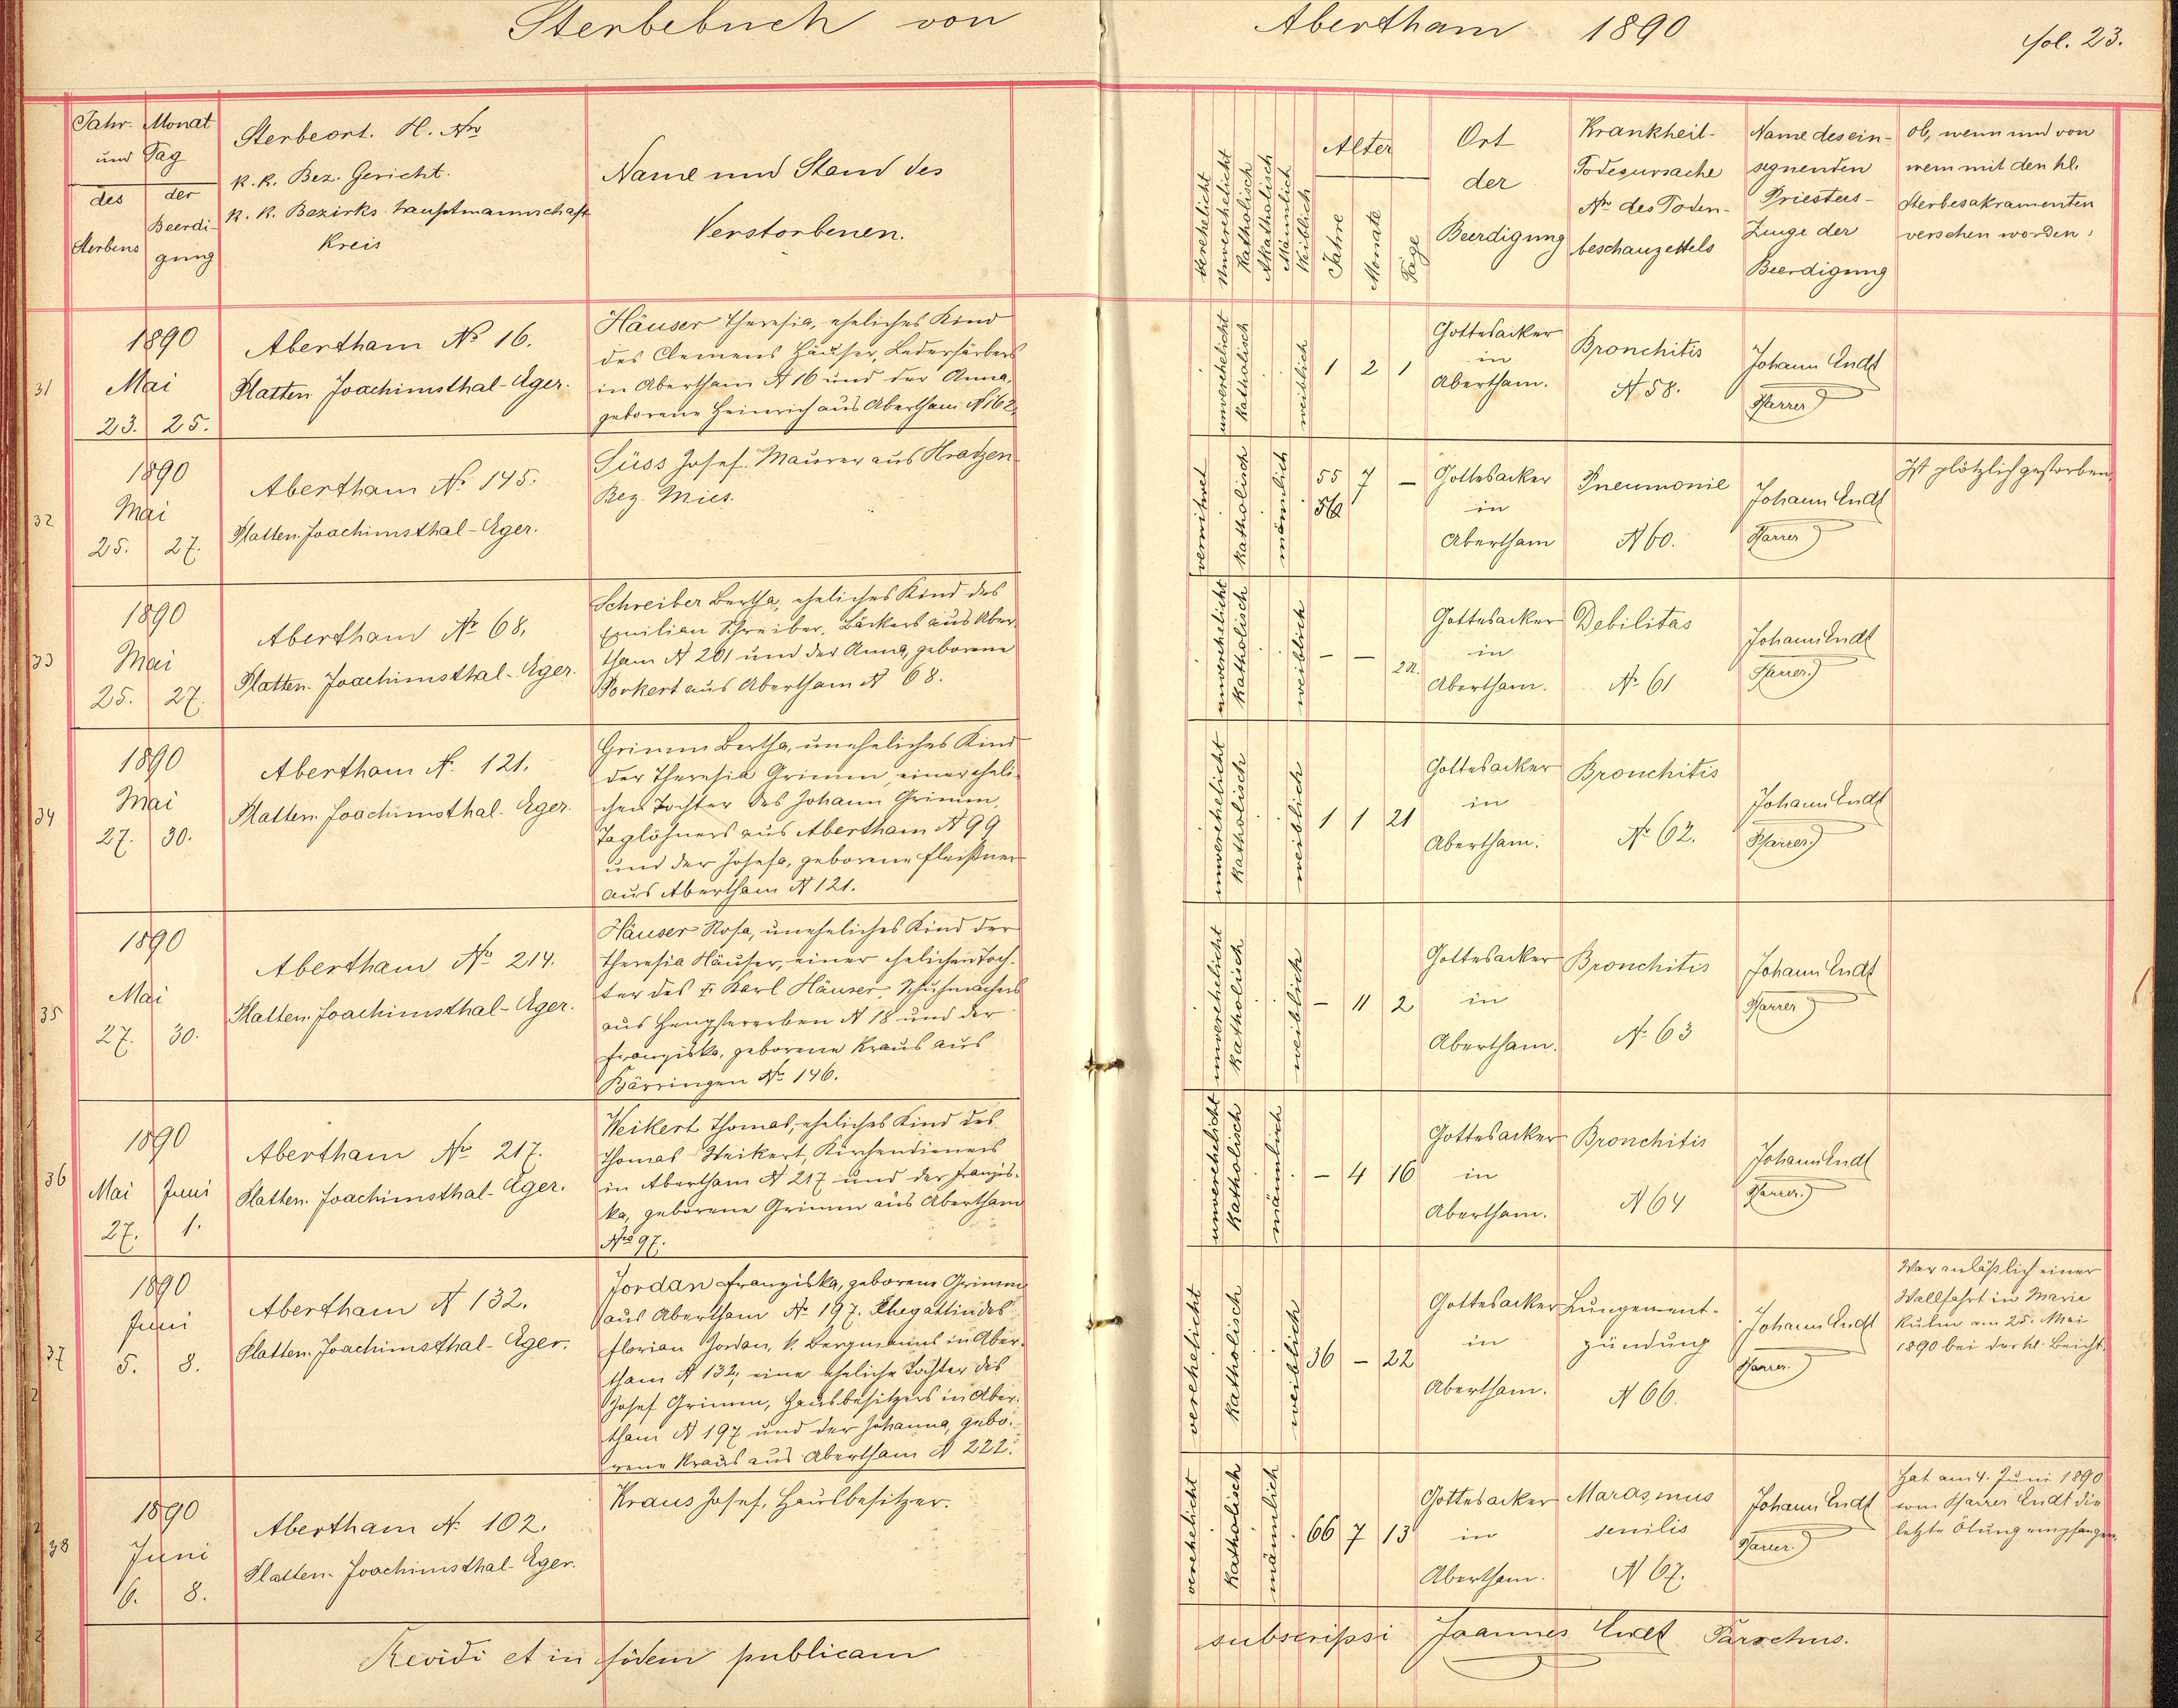 Sterbebuch von Abertham 1890 fol. 23.
Jahr. Monat
und Tag
des der
Sterbens Beerdi-
gung
Sterbeort. H. Nro
k. k. Bez. Gericht.
k. k. Bezirks-hauptmannschaft
Kreis
Name und Stand des
Verstorbenen.
verehelicht
Unverehelicht
Katholisch
Akatholisch
Männlich
Weiblich
Alter
Jahre
Monate
Tage
Ort
der
Beerdigung
Krankheit-
Todesursache
Nr. des Toden-
beschauzettels
Name des ein-
segnenden
Priesters-
Zeuge der
Beerdigung
ob, wenn und von
wem mit den hl.
Sterbesakramenten
versehen worden
31
1890
Mai
23. 25.
Abertham No 16.
Platten Joachimsthal-Eger.
Häuser Theresia, eheliches Kind
des Clemens Häuser, Lederfärbers
in Abertham N 16 und der Anna,
geborene Heinrich aus Abertham N 162.
unverehelicht
Katholisch
weiblich
1 2 1
Gottesacker
in
Abertham.
Bronchitis
N 58.
Johann Endt
Pfarrer
32
1890
Mai
25. 27.
Abertham No 145.
Platten Joachimsthal-Eger.
Süss Josef. Maurer aus Kratzen
Bez. Mies.
verwitwet
Katholisch
männlich
55 7 –
56
Gottesacker
in
Abertham
Pneumonie
N 60.
Johann Endt
Pfarrer
Ist plötzlich gestorben.
33
1890
Mai
25. 27.
Abertham Nr 68.
Platten. Joachimsthal-Eger.
Schreiber Bertha, eheliches Kind des
Emilian Schreiber, Bäckers aus Aber-
tham N 201 und der Anna, geborene
Porkert aus Abertham N 68.
unverehelicht
Katholisch
weiblich
– –
Gottesacker
in
Abertham.
Debilitas
No 61
Johann Endt
Pfarrer
34
1890
Mai
27. 30.
Abertham N. 121.
Platten Joachimsthal. Eger.
Grimm Bertha, uneheliches Kind
der Theresia Grimm, einer eheli-
chen Tochter des Johann Grimm,
Taglöhners aus Abertham N 99
und der Josefa, geborene Fleißner
aus Abertham N 121.
unverehelicht
Katholisch
weiblich
1 1 21
Gottesacker
in
Abertham.
Bronchitis
No 62.
Johann Endt
Pfarrer
35
1890
Mai
27. 30.
Abertham No 214.
Platten. Joachimsthal-Eger.
Häuser Rosa, uneheliches Kind der
Theresia Häuser, einer ehelichen Toch-
ter des Karl Häuser, Schuhmachers
aus Hengstererben N 18 und der
Franziska, geborene Kraus aus
Bärringen No 146.
unverehelicht
Katholisch
weiblich
– 11 2
Gottesacker
in
Abertham.
Bronchitis
N. 63
Johann Endt
Pfarrer
36
1890
Mai Juni
27. 1.
Abertham No 217.
Platten. Joachimsthal-Eger.
Weikert Thomas, eheliches Kind des
Thomas Weikert, Kirchendieners
in Abertham N 217 und der Franzis-
ka, geborene Grimm aus Abertham
Nro 97.
unverehelicht
Katholisch
männlich
– 4 16
Gottesacker
in
Abertham.
Bronchitis
N 64
Johann Endt
Pfarrer
37
1890
Juni
5. 8.
Abertham N 132.
Platten. Joachimsthal-Eger.
Jordan Franziska, geborene Grimm
aus Abertham No 197. Ehegattin des
Florian Jordan, k. Bergmanns in Aber-
tham N 132, eine eheliche Tochter des
Josef Grimm, Hausbesitzers in Aber-
tham N 197 und der Johanna, gebo-
rene Kraus aus Abertham N 222.
verehelicht
Katholisch
weiblich
36 – 22
Gottesacker
in
Abertham.
Lungenent-
zündung
N 66.
Johann Endt
Pfarrer
War anläßlich einer
Wallfahrt in Maria
Kulm am 25. Mai
1890 bei der hl. Beicht.
38
1890
Juni
6. 8.
Abertham N. 102.
Platten. Joachimsthal-Eger.
Kraus Josef, Hausbesitzer.
verehelicht
Katholisch
männlich
66 7 13
Gottesacker
in
Abertham.
Marasmus
senilis
N 67.
Johann Endt
Pfarrer
Hat am 4. Juni 1890
vom Pfarrer Endt die
letzte Ölung empfangen.
Revidi et in fidem publicam subscripsi Joannes Endt Parochus.